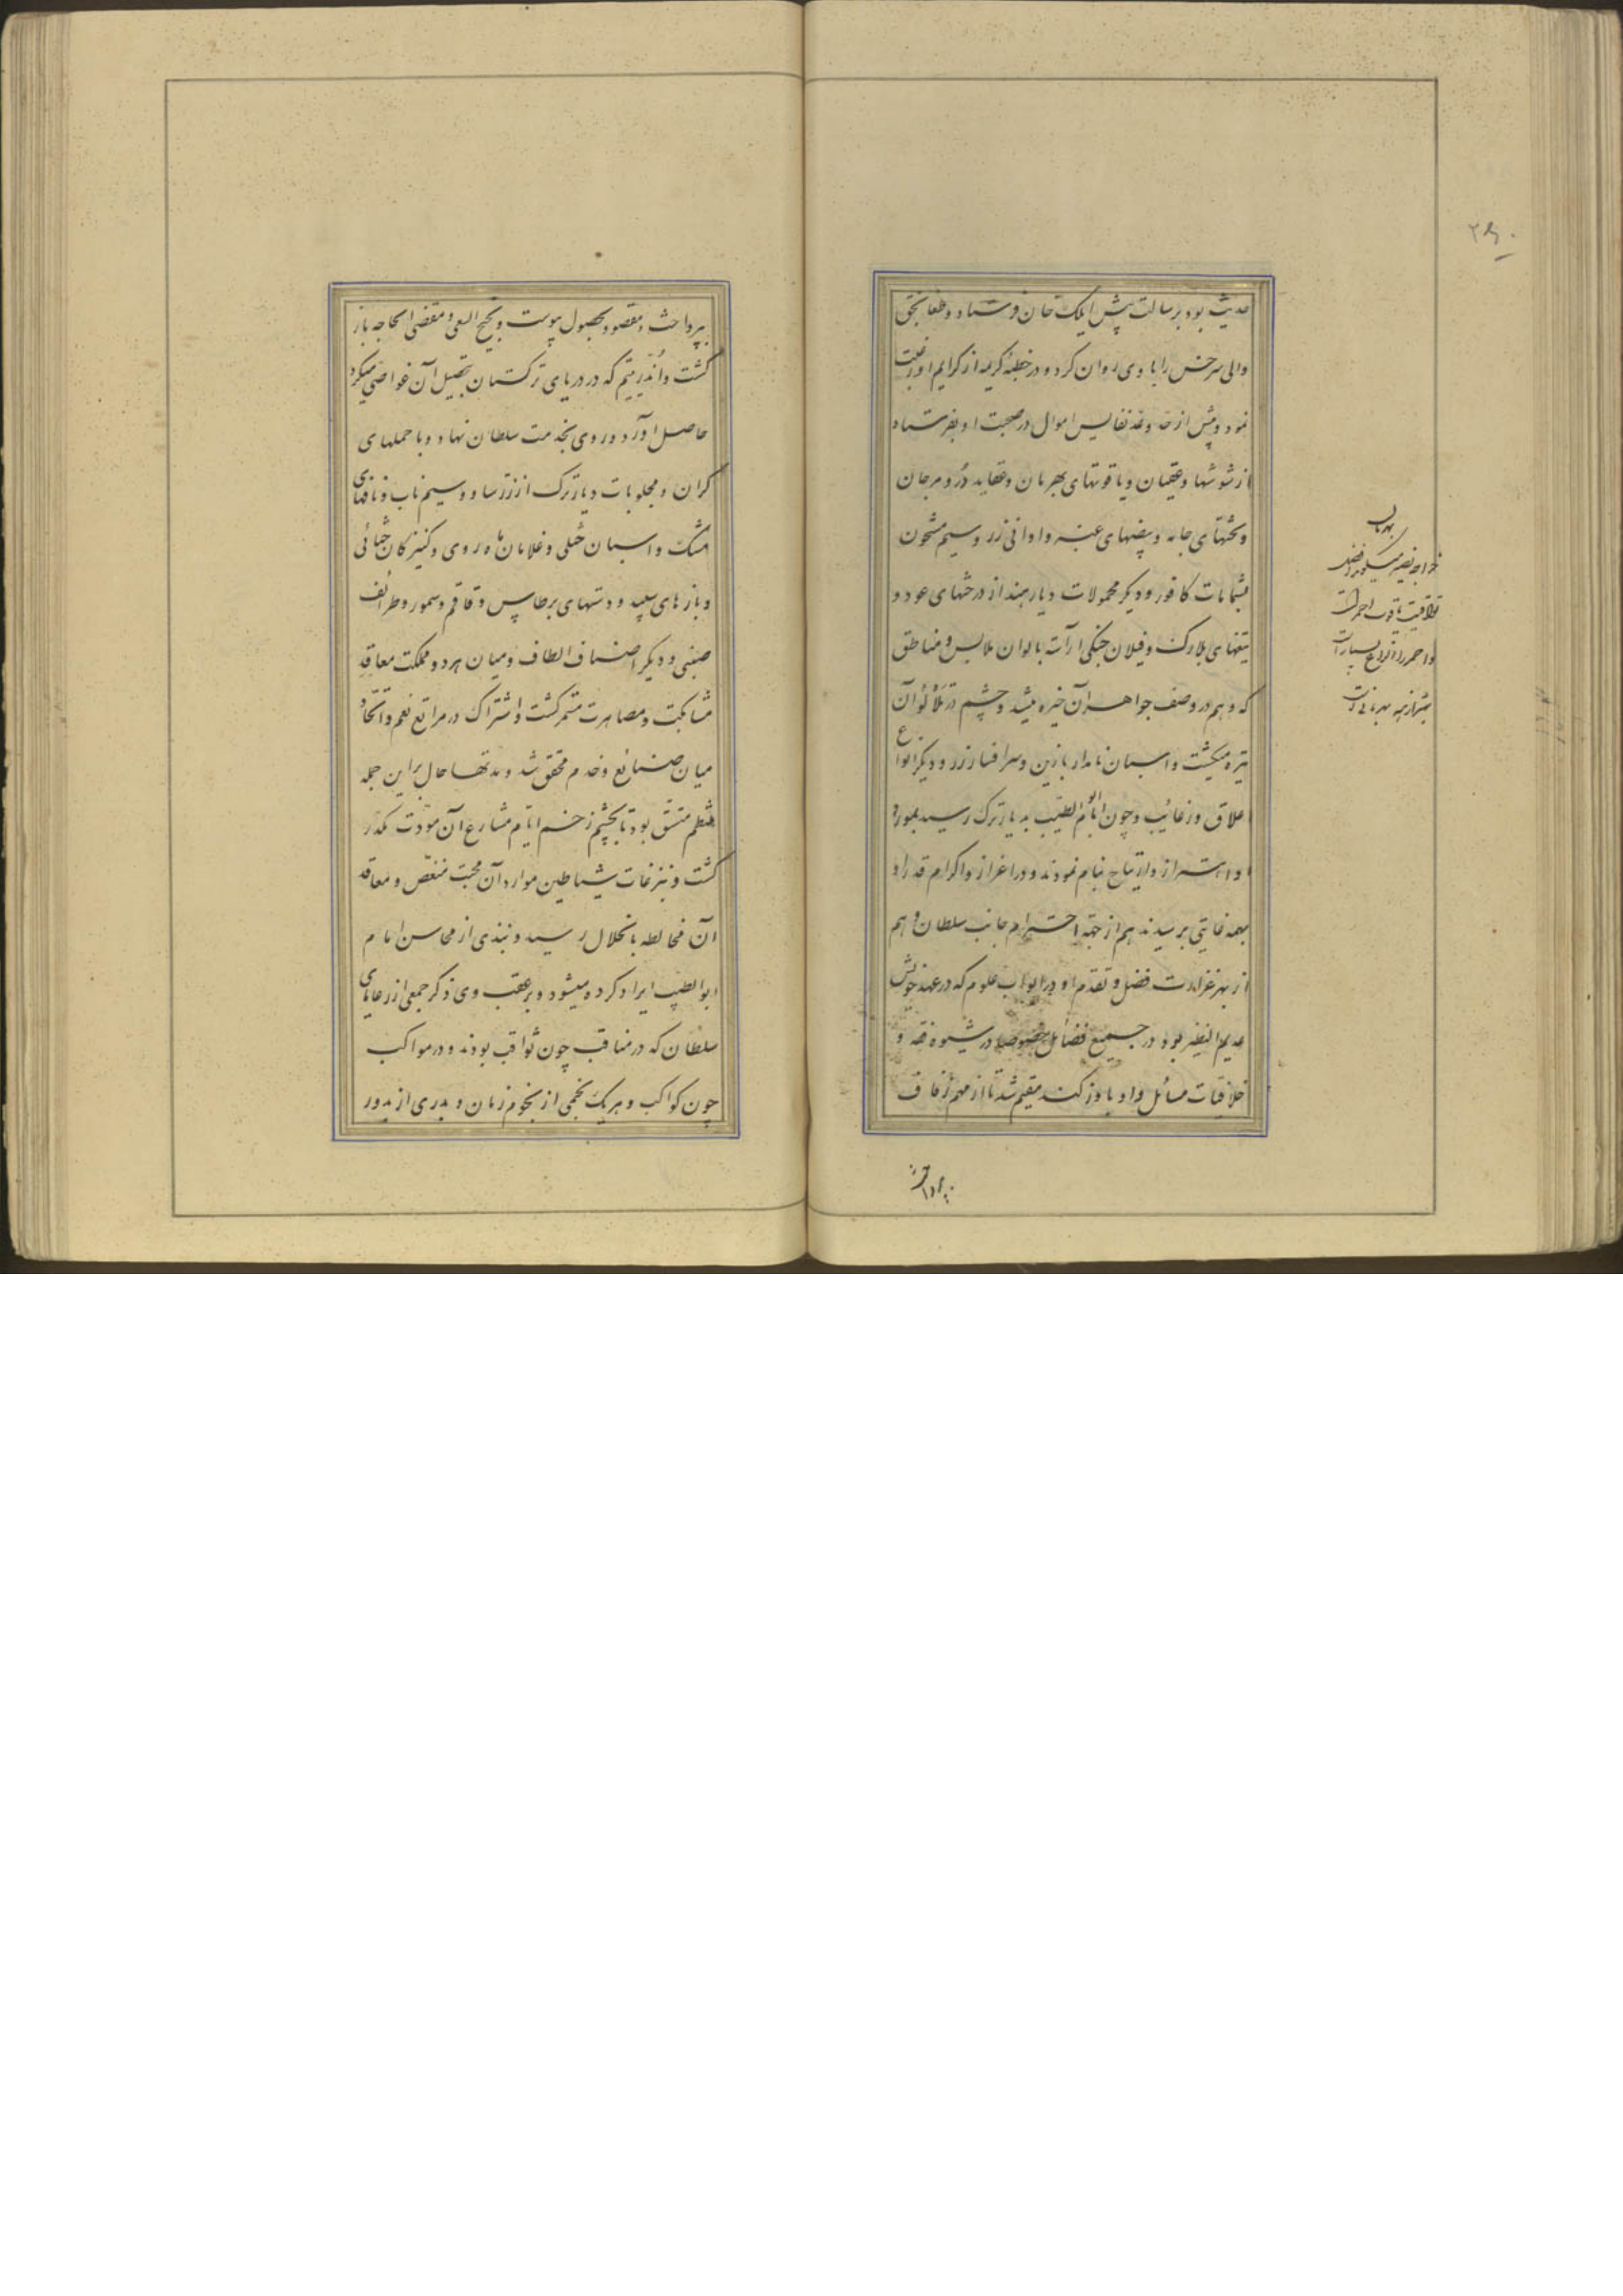 حدیث بود برسالت پیش ایلک خان فرستاد و طغانجق
والی سرخس را با وی روان کرد و در خطبهٔ کریمه از کرایم او رغبت
نمود و بیش از حد و عد نفایس اموال در صحبت او بفرستاد
از شوشها و عقیان و یاقوتهای بهرمان و عقاید در و مرجان
و تختهای جامه و بیضهای عنبر و اوانی زر و سیم مشحون
بشمامات کافور و دیگر محمولات دیار هند از درختهای عود و
تیغهای بلارک و فیلان جنگی آراسته بالوان ملابس و مناطق
که وهم در وصف جواهر آن خیره میشد و چشم در تلألؤ آن
تیره میگشت و اسبان نامدار با زین و سرافسار زر و دیگر انواع
اعلاق و رغائب و چون امام ابو الطیب بدیار ترک رسید بمورد
او اهتزاز و ارتیاح تمام نمودند و در اعزاز و اکرام قدر او
بهمه غایتی برسیدند هم از جهة احترام جانب سلطان و هم
از بهر غزارت فضل و تقدم او در ابواب علوم که در عهد خویش
عدیم النظیر بود در جمیع فضائل خصوصا در شیوه فقه و
خلافیات مسائل و او باوزکند مقیم شد تا از مهم زفاف
بپرداخت
بهرمان
خواجه نصیر میگوید افضل
یواقیت یاقوت احمر است
و احمر را انواع بسیار است
بهتر از همه بهرمانی است
بپرداخت و مقصود بحصول پیوست و نجیح السعی و مقضی الحاجه باز
گشت و آن در یتیم که در دریای ترکستان بتحصیل آن غواصی میکرد
حاصل آورد و روی بخدمت سلطان نهاد و با حملهای
گران و مجلوبات دیار ترک از زر ساو و سیم ناب و نافهای
مشک و اسبان ختلی و غلامان ماه روی و کنیزکان ختائی
و بازهای سپید و دستهای برطاس و قاقم و سمور و طرائف
صینی و دیگر اصناف الطاف و میان هر دو مملکت معاقد
مشابکت و مصاهرت مستمر گشت و اشتراک در مراتع نعم و اتحاد
میان صنائع و خدم محقق شد و مدتها حال بر این جمله
منتظم و متسق بود تا بچشم زخم ایام مشارع آن مودت مکدر
گشت و بنزغات شیاطین موارد آن محبت منغص و معاقد
آن مخالطه بانحلال رسید و نبذی از محاسن امام
ابو الطیب ایراد کرده میشود و بر عقب وی ذکر جمعی از رعایای
سلطان که در مناقب چون ثواقب بودند و در مواکب
چون کواکب و هر یک نجمی از نجوم زمان و بدری از بدور